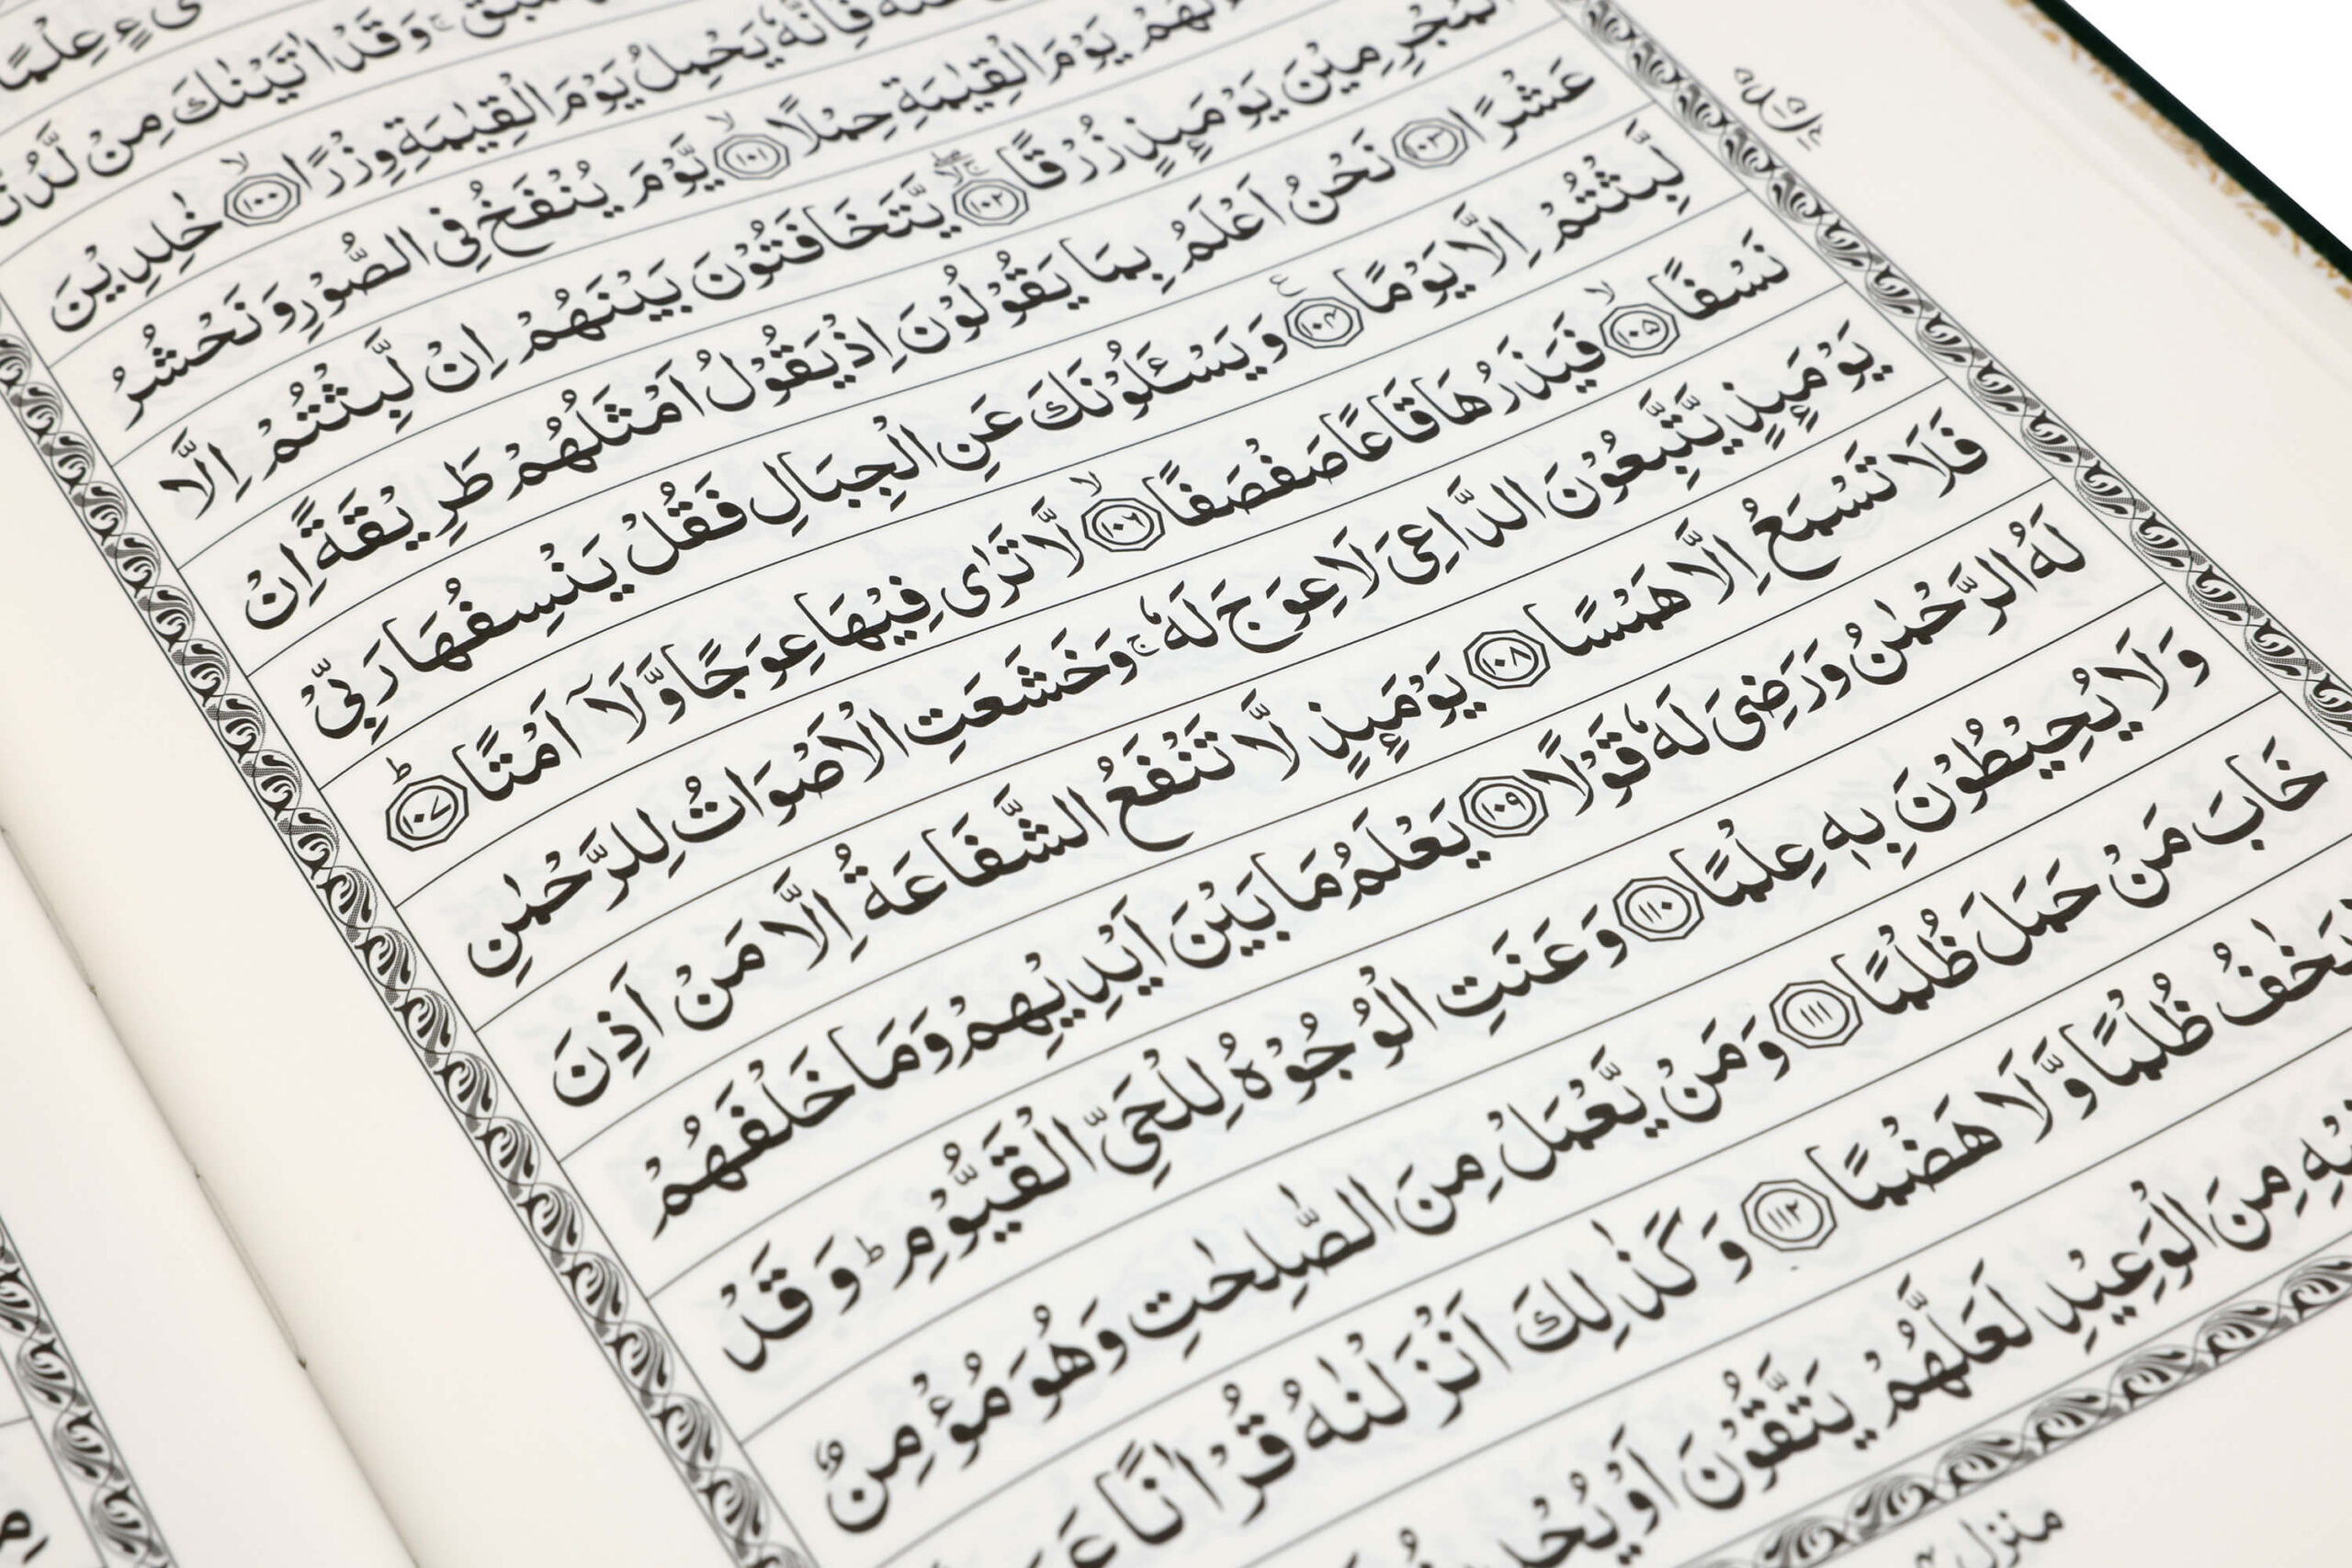 ءٍ عِلْمًا
وَقَدْ اٰتَيْنٰكَ مِنْ لَّدُنَّا
فَاِنَّهٗ يَحْمِلُ يَوْمَ الْقِيٰمَةِ وِزْرًا ۙ‏﴿۱۰۰﴾ خٰلِدِيْنَ
لَهُمْ يَوْمَ الْقِيٰمَةِ حِمْلًا ۙ‏﴿۱۰۱﴾ يَّوْمَ يُنْفَخُ فِى الصُّوْرِ وَنَحْشُرُ
الْمُجْرِمِيْنَ يَوْمَىِٕذٍ زُرْقًا ﴿۱۰۲﴾ يَّتَخَافَتُوْنَ بَيْنَهُمْ اِنْ لَّبِثْتُمْ اِلَّا
عَشْرًا ﴿۱۰۳﴾ نَحْنُ اَعْلَمُ بِمَا يَقُوْلُوْنَ اِذْ يَقُوْلُ اَمْثَلُهُمْ طَرِيْقَةً اِنْ
لَّبِثْتُمْ اِلَّا يَوْمًا ﴿۱۰۴﴾ وَيَسْـَٔلُوْنَكَ عَنِ الْجِبَالِ فَقُلْ يَنْسِفُهَا رَبِّىْ
نَسْفًا ۙ‏﴿۱۰۵﴾ فَيَذَرُهَا قَاعًا صَفْصَفًا ۙ‏﴿۱۰۶﴾ لَّا تَرٰى فِيْهَا عِوَجًا وَّلَاۤ اَمْتًا ؕ‏﴿۱۰۷﴾
يَوْمَىِٕذٍ يَّتَّبِعُوْنَ الدَّاعِىَ لَا عِوَجَ لَهٗ ۚ وَخَشَعَتِ الْاَصْوَاتُ لِلرَّحْمٰنِ
فَلَا تَسْمَعُ اِلَّا هَمْسًا ﴿۱۰۸﴾ يَوْمَىِٕذٍ لَّا تَنْفَعُ الشَّفَاعَةُ اِلَّا مَنْ اَذِنَ
لَهُ الرَّحْمٰنُ وَرَضِىَ لَهٗ قَوْلًا ﴿۱۰۹﴾ يَعْلَمُ مَا بَيْنَ اَيْدِيْهِمْ وَمَا خَلْفَهُمْ
وَلَا يُحِيْطُوْنَ بِهٖ عِلْمًا ﴿۱۱۰﴾ وَعَنَتِ الْوُجُوْهُ لِلْحَىِّ الْقَيُّوْمِ ؕ وَقَدْ
خَابَ مَنْ حَمَلَ ظُلْمًا ﴿۱۱۱﴾ وَمَنْ يَّعْمَلْ مِنَ الصّٰلِحٰتِ وَهُوَ مُؤْمِنٌ
يَخٰفُ ظُلْمًا وَّلَا هَضْمًا ﴿۱۱۲﴾ وَكَذٰلِكَ اَنْزَلْنٰهُ قُرْاٰنًا
فِيْهِ مِنَ الْوَعِيْدِ لَعَلَّهُمْ يَتَّقُوْنَ اَوْ
منزل